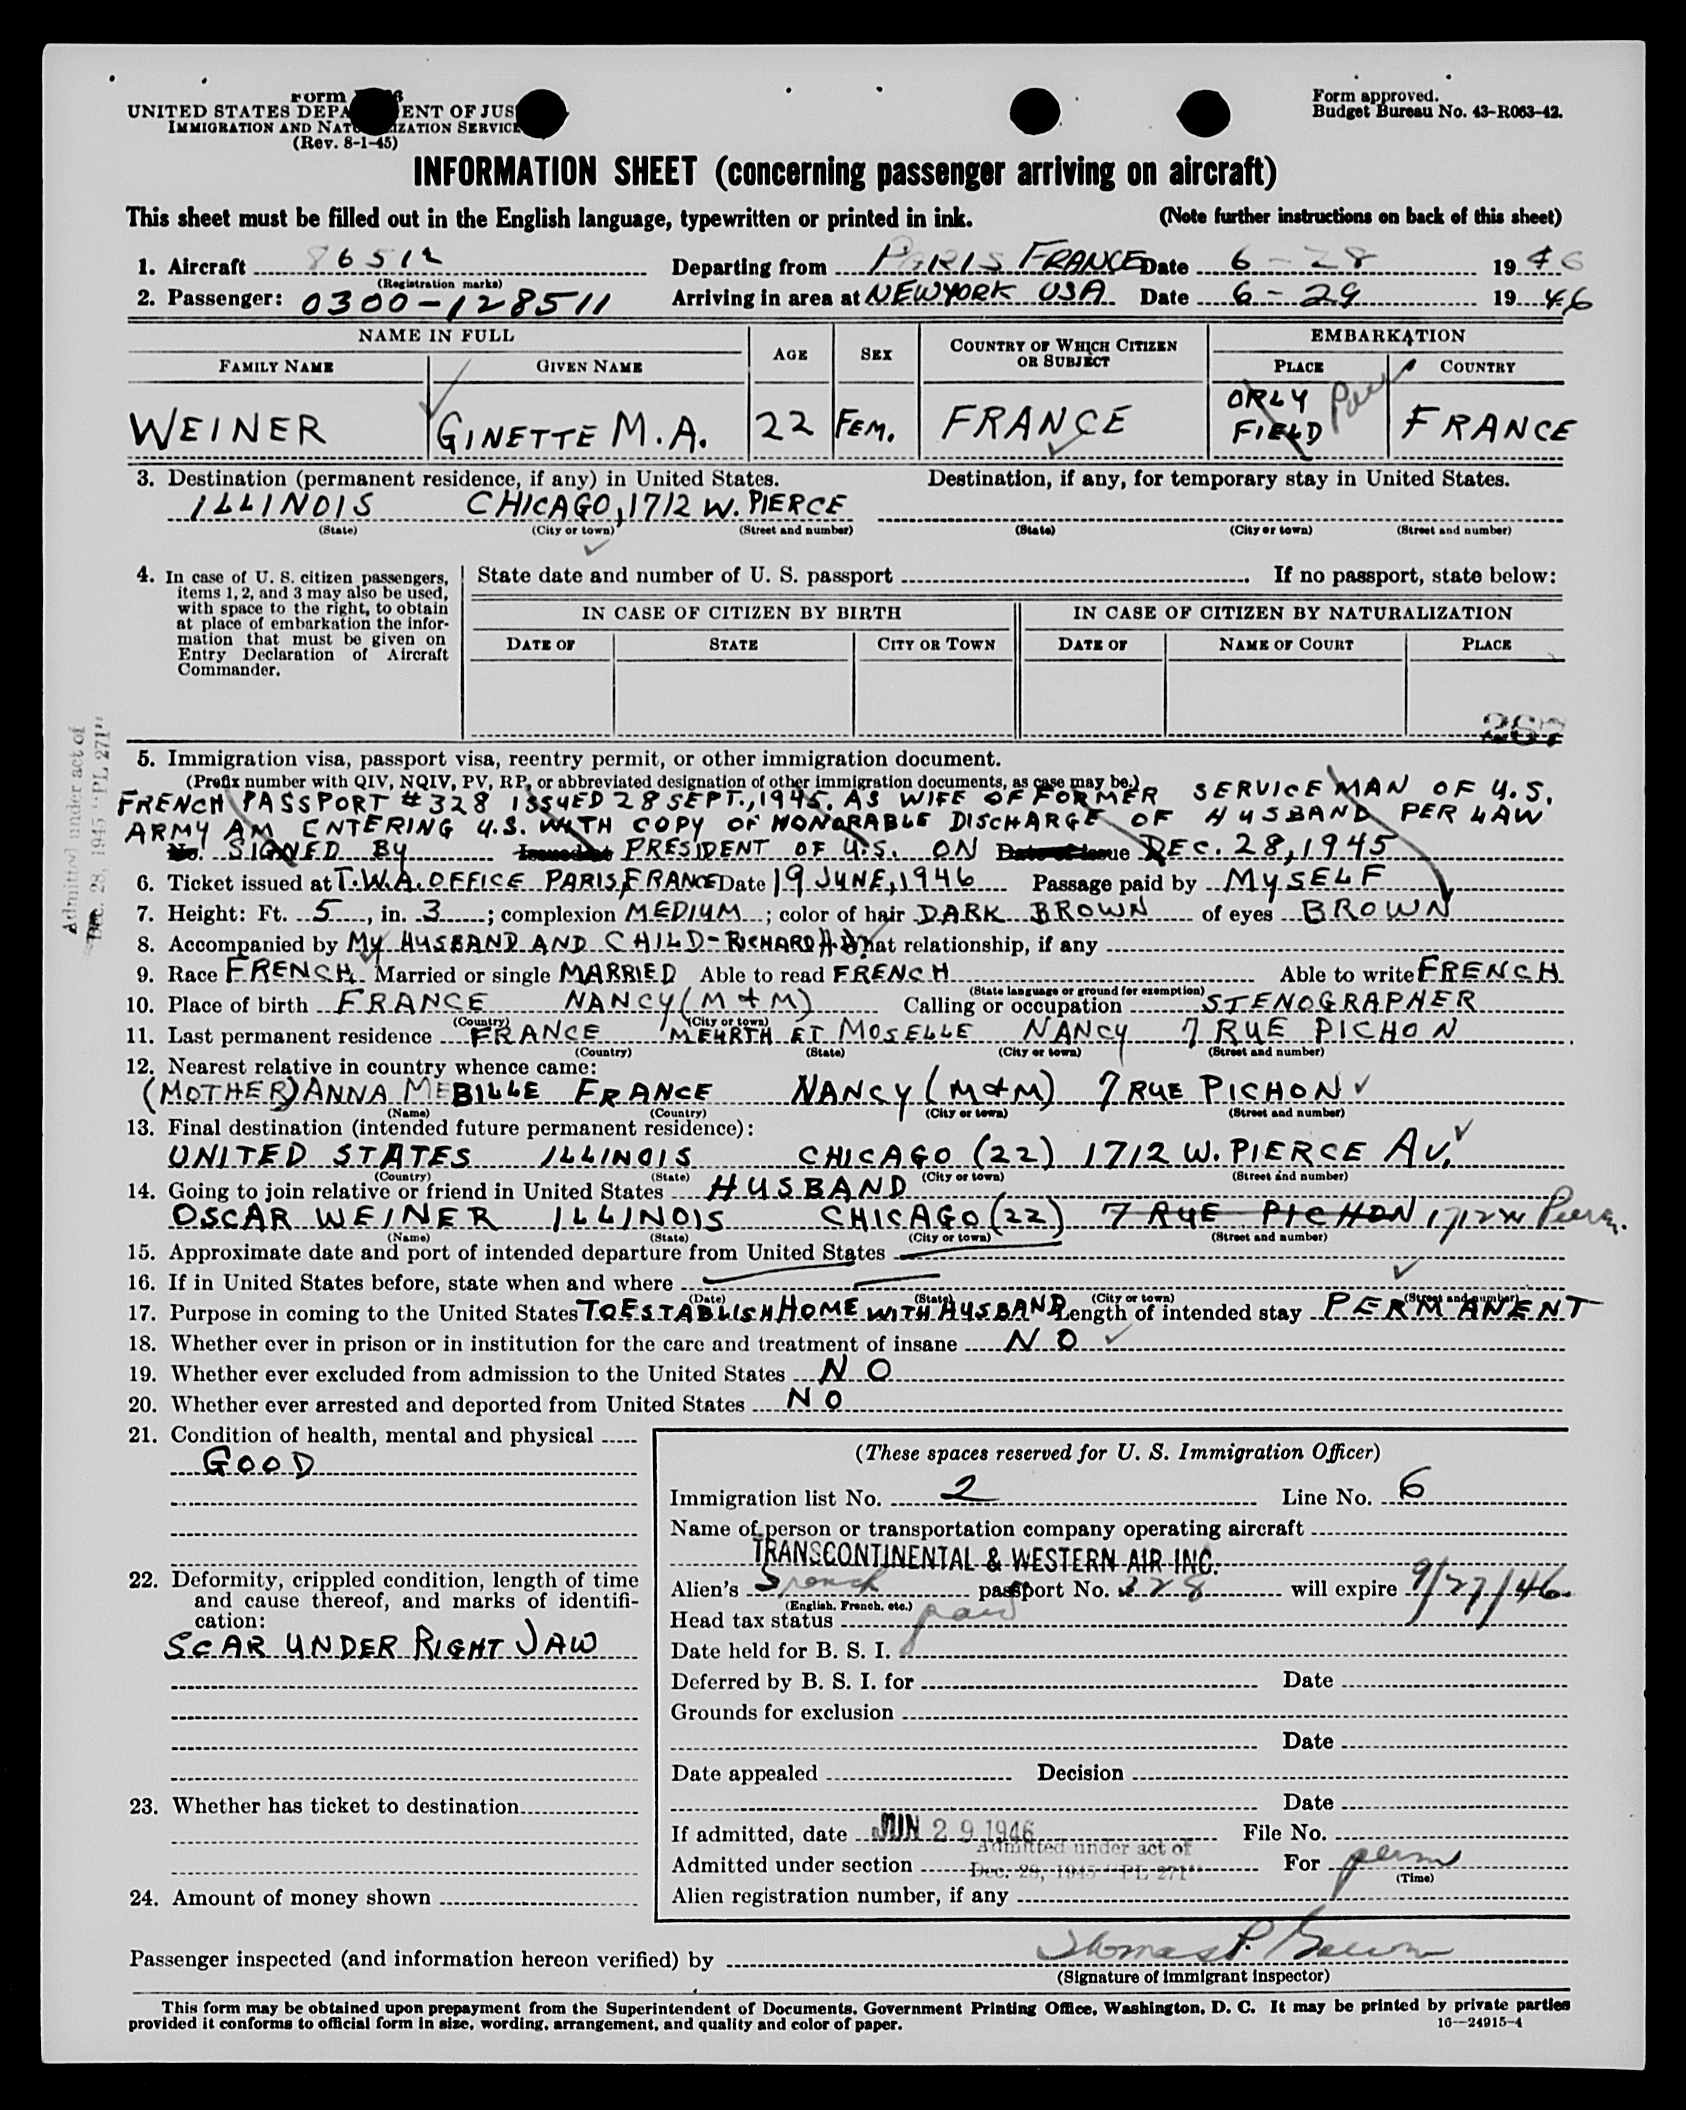 Form
UNITED STATES DEPA ENT OF JUS
IMMIGRATION AND NATU IZATION SERVICE
(Rev. 8-1-45)
Form approved.
Budget Bureau No. 43-R063-42.
INFORMATION SHEET (concerning passenger arriving on aircraft)
This sheet must be filled out in the English language, typewritten or printed in ink. (Note further instructions on back of this sheet)
1. Aircraft 86512 Departing from PARIS FRANCE Date 6-28 1946
(Registration marks)
2. Passenger: 0300-128511 Arriving in area at NEWYORK USA Date 6-29 1946
NAME IN FULL AGE SEX COUNTRY OF WHICH CITIZEN OR SUBJECT EMBARKATION
FAMILY NAME GIVEN NAME PLACE COUNTRY
WEINER GINETTE M.A. 22 FEM. FRANCE ORLY FIELD FRANCE
3. Destination (permanent residence, if any) in United States. Destination, if any, for temporary stay in United States.
ILLINOIS CHICAGO, 1712 W. PIERCE
(State) (City or town) (Street and number) (State) (City or town) (Street and number)
4. In case of U. S. citizen passengers, items 1, 2, and 3 may also be used, with space to the right, to obtain at place of embarkation the information that must be given on Entry Declaration of Aircraft Commander.
State date and number of U. S. passport If no passport, state below:
IN CASE OF CITIZEN BY BIRTH IN CASE OF CITIZEN BY NATURALIZATION
DATE OF STATE CITY OR TOWN DATE OF NAME OF COURT PLACE
Admitted under act of
Dec. 28, 1945 "PL 271"
5. Immigration visa, passport visa, reentry permit, or other immigration document.
(Prefix number with QIV, NQIV, PV, RP, or abbreviated designation of other immigration documents, as case may be.)
FRENCH PASSPORT #328 ISSUED 28 SEPT., 1945. AS WIFE OF FORMER SERVICE MAN OF U.S.
ARMY AM ENTERING U.S. WITH COPY OF HONORABLE DISCHARGE OF HUSBAND PER LAW
No. SIGNED BY Issued at PRESIDENT OF U.S. ON Date of issue DEC. 28, 1945
6. Ticket issued at T.W.A. OFFICE PARIS, FRANCE Date 19 JUNE, 1946 Passage paid by MYSELF
7. Height: Ft. 5, in. 3; complexion MEDIUM; color of hair DARK BROWN of eyes BROWN
8. Accompanied by MY HUSBAND AND CHILD-RICHARD What relationship, if any
9. Race FRENCH Married or single MARRIED Able to read FRENCH Able to write FRENCH
(State language or ground for exemption)
10. Place of birth FRANCE NANCY (M & M) Calling or occupation STENOGRAPHER
(Country) (City or town)
11. Last permanent residence FRANCE MEURTH ET MOSELLE NANCY 7 RUE PICHON
(Country) (State) (City or town) (Street and number)
12. Nearest relative in country whence came:
(MOTHER) ANNA MEBILLE FRANCE NANCY (M & M) 7 RUE PICHON
(Name) (Country) (City or town) (Street and number)
13. Final destination (intended future permanent residence):
UNITED STATES ILLINOIS CHICAGO (22) 1712 W. PIERCE AV.
(Country) (State) (City or town) (Street and number)
14. Going to join relative or friend in United States HUSBAND
OSCAR WEINER ILLINOIS CHICAGO (22) 7 RUE PICHON 1712 W
(Name) (State) (City or town) (Street and number)
15. Approximate date and port of intended departure from United States
16. If in United States before, state when and where
(Date) (State) (City or town) (Street and number)
17. Purpose in coming to the United States TO ESTABLISH HOME WITH HUSBAND Length of intended stay PERMANENT
18. Whether ever in prison or in institution for the care and treatment of insane NO
19. Whether ever excluded from admission to the United States NO
20. Whether ever arrested and deported from United States NO
21. Condition of health, mental and physical
GOOD
22. Deformity, crippled condition, length of time and cause thereof, and marks of identification:
SCAR UNDER RIGHT JAW
23. Whether has ticket to destination
24. Amount of money shown
(These spaces reserved for U. S. Immigration Officer)
Immigration list No. 2 Line No. 6
Name of person or transportation company operating aircraft
TRANSCONTINENTAL & WESTERN AIR INC.
Alien's French passport No. 328 will expire 9/27/46
(English, French, etc.)
Head tax status paid
Date held for B. S. I.
Deferred by B. S. I. for Date
Grounds for exclusion
Date
Date appealed Decision
Date
If admitted, date JUN 29 1946 File No.
Admitted under section Admitted under act of Dec. 28, 1945 "PL 271" For perm
(Time)
Alien registration number, if any
Passenger inspected (and information hereon verified) by Thomas P.
(Signature of immigrant inspector)
This form may be obtained upon prepayment from the Superintendent of Documents, Government Printing Office, Washington, D. C. It may be printed by private parties
provided it conforms to official form in size, wording, arrangement, and quality and color of paper. 16—24915-4